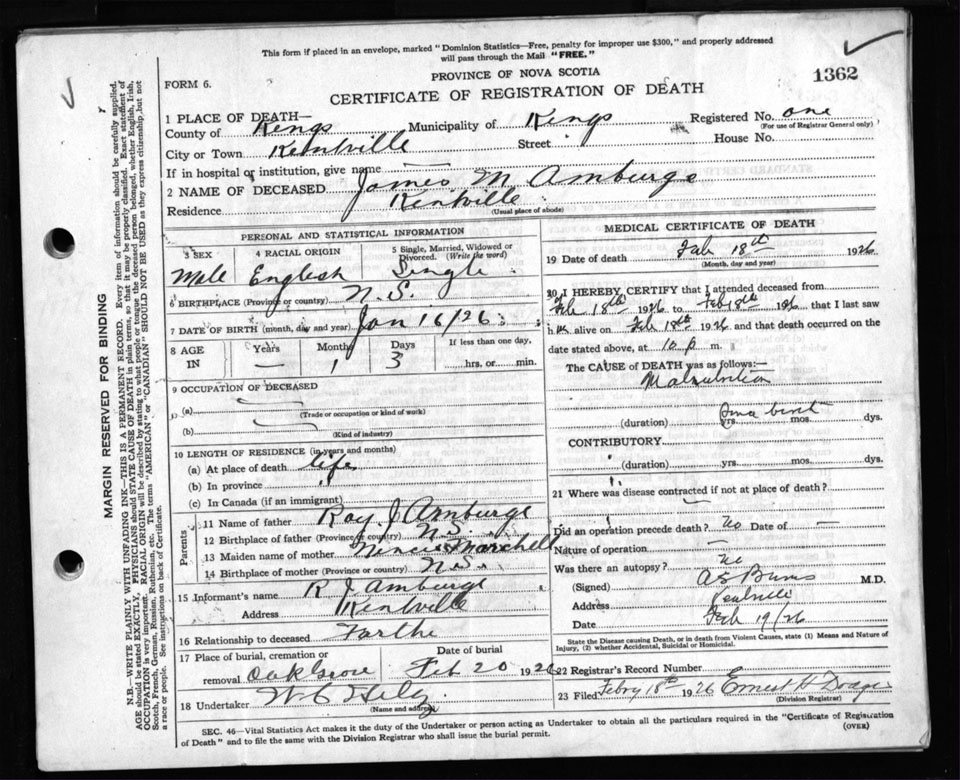 This form if placed in an envelope, marked "Dominion Statistics—Free, penalty for improper use $300," and properly addressed
will pass through the Mail "FREE."
FORM 6.
PROVINCE OF NOVA SCOTIA
1362
CERTIFICATE OF REGISTRATION OF DEATH
1 PLACE OF DEATH—
County of Kings Municipality of Kings Registered No. one
(For use of Registrar General only)
City or Town Kentville Street House No.
If in hospital or institution, give name —
2 NAME OF DECEASED James M Amburgs
Residence Kentville
(Usual place of abode)
PERSONAL AND STATISTICAL INFORMATION
3 SEX 4 RACIAL ORIGIN 5 Single, Married, Widowed or Divorced. (Write the word)
Male English Single
6 BIRTHPLACE (Province or country) N.S.
7 DATE OF BIRTH (month, day and year) Jan 16/26
8 AGE IN Years Months Days If less than one day,
— 1 3 hrs. or min.
9 OCCUPATION OF DECEASED
(a)
(Trade or occupation or kind of work)
(b)
(Kind of industry)
10 LENGTH OF RESIDENCE (in years and months)
(a) At place of death life
(b) In province "
(c) In Canada (if an immigrant)
Parents
11 Name of father Roy J Amburgs
12 Birthplace of father (Province or country) N.S.
13 Maiden name of mother Marshell
14 Birthplace of mother (Province or country) N.S.
15 Informant's name R J Amburgs
Address Kentville
16 Relationship to deceased Farthe
17 Place of burial, cremation or Date of burial
removal Oak Grove Feb 20 1926
18 Undertaker W C
(Name and address)
MEDICAL CERTIFICATE OF DEATH
19 Date of death Feb 18th 1926
(Month, day and year)
20 I HEREBY CERTIFY that I attended deceased from
Feb 18th 1926 to Feb 18th 1926 that I last saw
him alive on Feb 18th 1926 and that death occurred on the
date stated above, at 10 p m.
The CAUSE of DEATH was as follows:—
Malnutrition
since birth
(duration) yrs. mos. dys.
CONTRIBUTORY
(duration) yrs. mos. dys.
21 Where was disease contracted if not at place of death?
—
Did an operation precede death? No Date of —
Nature of operation —
Was there an autopsy? No
(Signed) A S Burns M.D.
Address Kentville
Date Feb 19/26
State the Disease causing Death, or in death from Violent Causes, state (1) Means and Nature of
Injury, (2) whether Accidental, Suicidal or Homicidal.
22 Registrar's Record Number
23 Filed Febry 18th 1926 Ernest H
(Division Registrar)
SEC. 46—Vital Statistics Act makes it the duty of the Undertaker or person acting as Undertaker to obtain all the particulars required in the "Certificate of Registration
of Death" and to file the same with the Division Registrar who shall issue the burial permit.
(OVER)
MARGIN RESERVED FOR BINDING
N.B.—WRITE PLAINLY WITH UNFADING INK—THIS IS A PERMANENT RECORD. Every item of information should be carefully supplied.
AGE should be stated EXACTLY. PHYSICIANS should STATE CAUSE OF DEATH in plain terms, so that it may be properly classified. Exact statement of
OCCUPATION is very important. RACIAL ORIGIN will be described by stating to what people or tongue the deceased person belonged, whether English, Irish,
Scotch, French, German, Russian, Ruthenian, etc. The terms "AMERICAN" or "CANADIAN" SHOULD NOT BE USED as they express citizenship but not
a race or people. See instructions on back of Certificate.